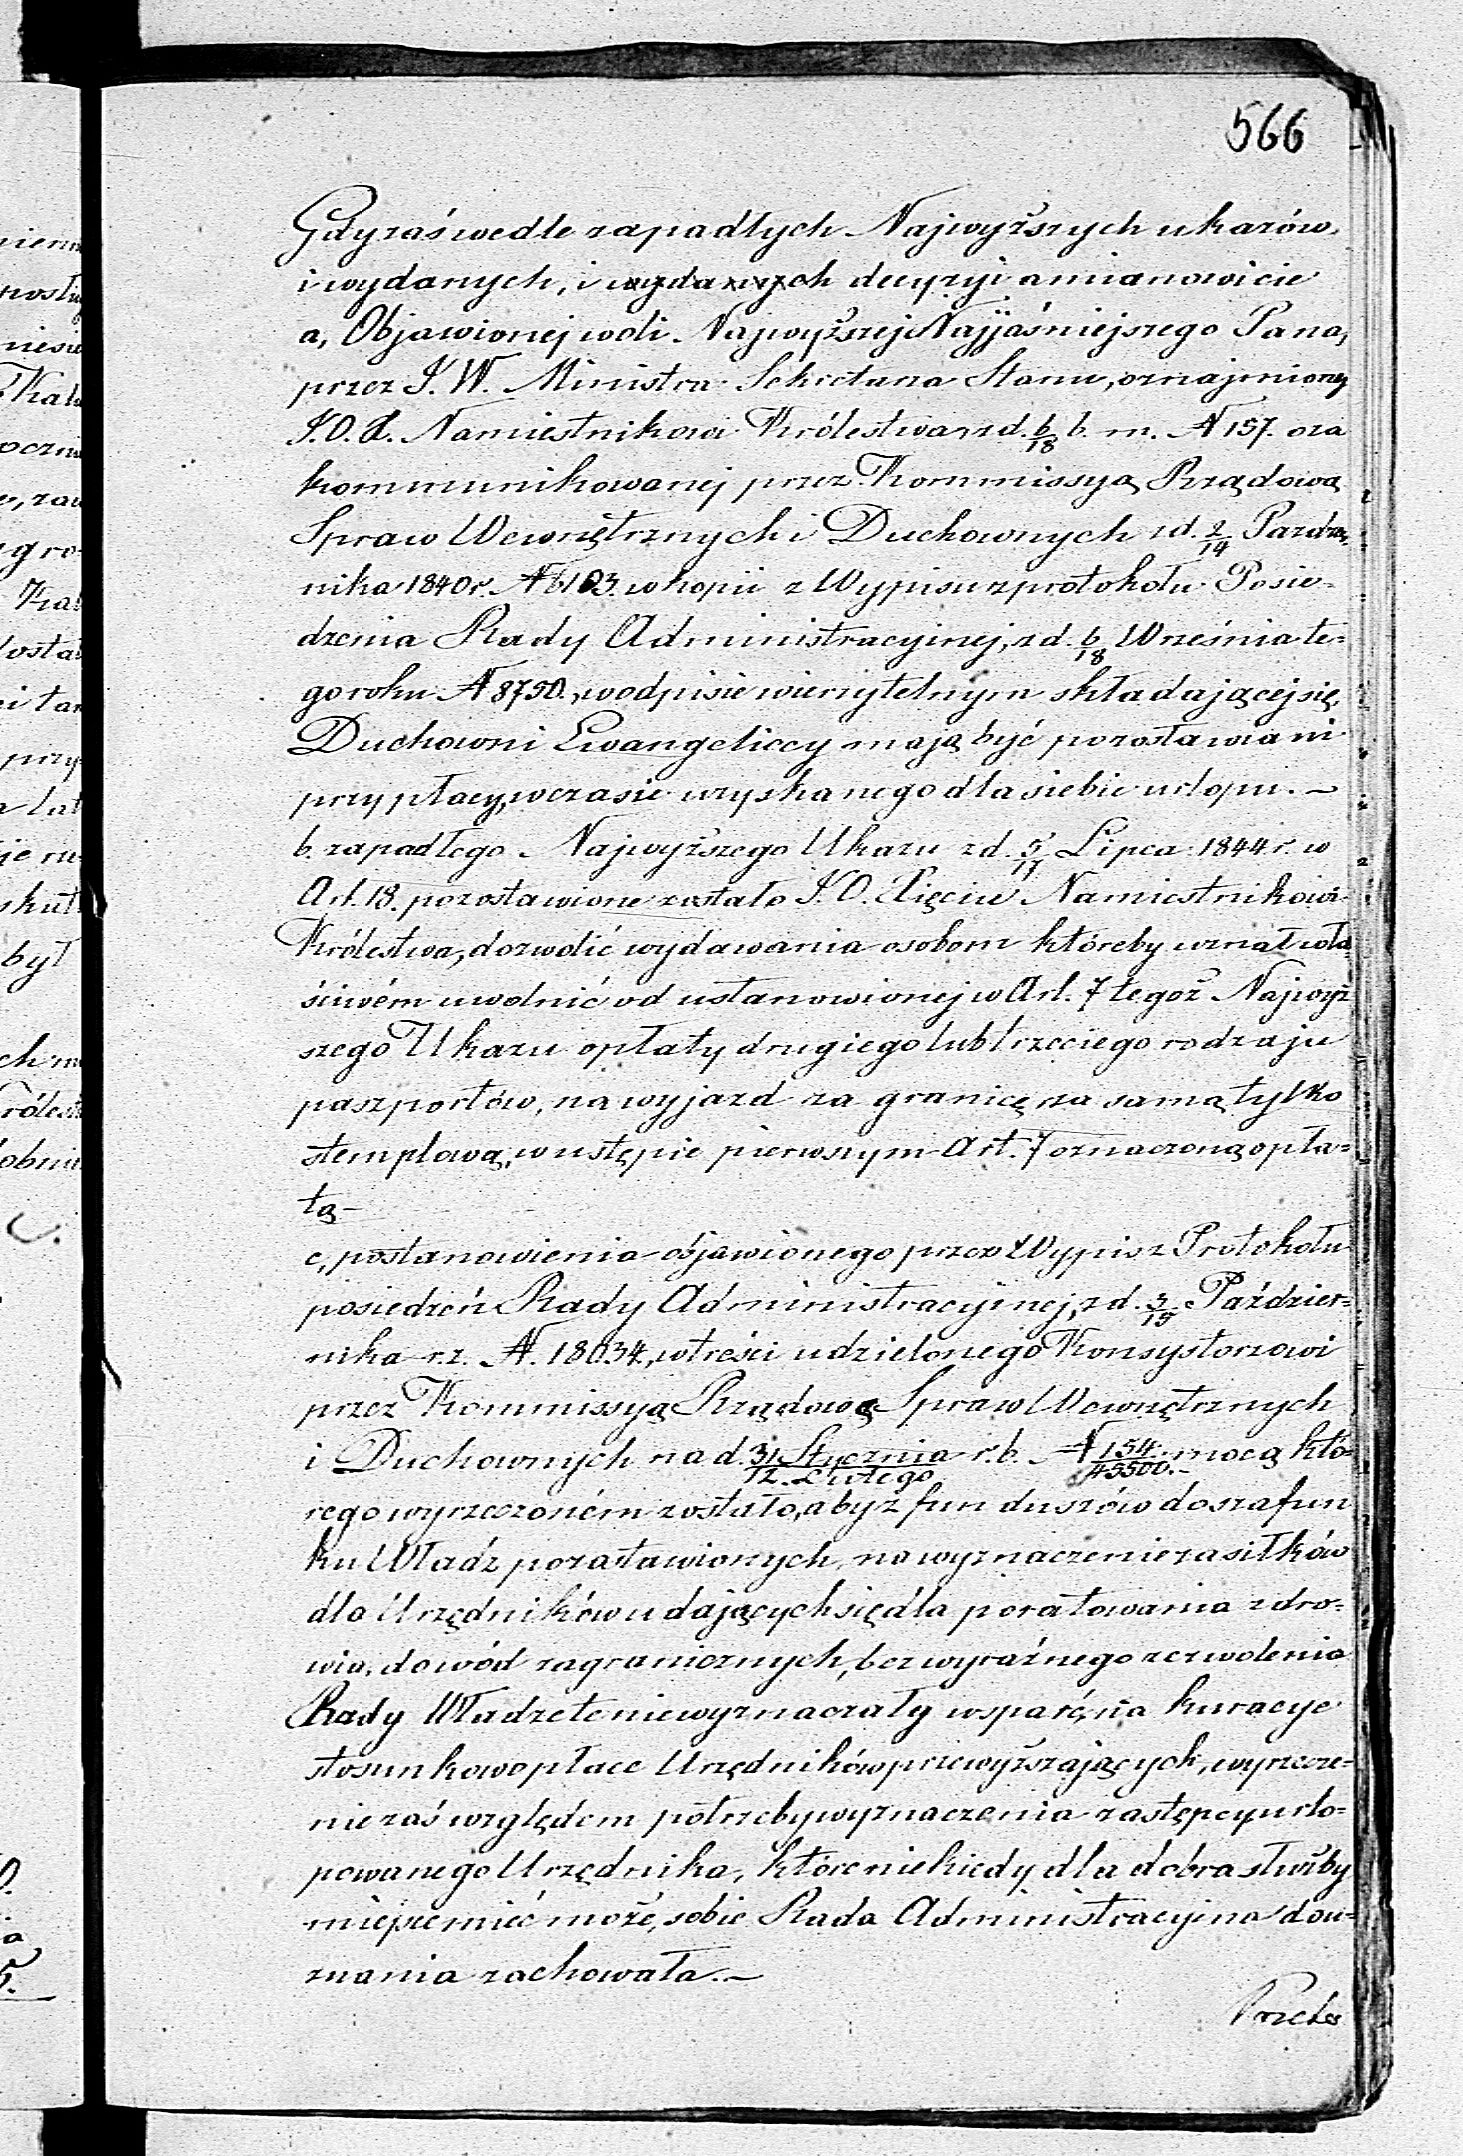 566
Gdy zaś wedle zapadłych Najwyższych ukazów,
i wydanych, i wydanych decyzyi amianowicie
a, Objawionej woli Najwyższej Najjaśniejszego Pana,
przez J. W. Ministra Sekretarza Stanu, oznajmionej
J. O. X. Namiestnikowi Królestwa zd. 6/18 b. m. N 157. oza
kommunikowanej przez Kommissyą Rządową
Spraw Wewnętrznych i Duchownych zd. 2/14 Paździer,
nika 1840 r. N 6103. w kopii z Wypisu z protokołu Posie=
dzenia Rady Administracyinej, zd. 6/18 Września te=
go roku N 8750., w odpisie wierzytelnym składającej się,
Duchowni Ewangeliccy mają być pozostawiani
przy płacy, w czasie uzyskanego dla siebie urlopu. –
b. zapadłego Najwyższego Ukazu zd. 5/17 Lipca 1844 r. w
Art. 18. pozostawione zostało J. O. Xięciu Namiestnikowi
Królestwa, dozwolić wydawania osobom któreby uznał wła=
ściwém uwolnić od ustanowionej w Art. 7 tegoż Najwyż
szego Ukazu opłaty drugiego lub trzeciego rodzaju
paszportów, na wyjazd za granicę za samą tylko
stemplową, w ustępie pierwszym Art. 7 oznaczoną opła=
tą –
c, postanowienia objawionego przez Wypis z Protokołu
posiedzeń Rady Administracyinej, zd. 3/15 Paździer=
nika r. z. N. 18034, w treści udzielonego Konsystorzowi
przez Kommissyą Rządową Spraw Wewnętrznych
i Duchownych na d. 31 Stycznia/12. Lutego r. b. N 154/45500. – mocą któ=
rego wyrzeczoném zostało, aby z funduszów do szafun
ku Władz pozostawionych, na wyznaczenie zasiłków
dla Urzędników udających się dla poratowania zdro=
wia, do wód zagranicznych, bez wyraźnego zezwolenia
Rady Władze te nie wyznaczały wsparć, na kuracye
stosunkowo płace Urzędników przewyższających, wyrzecze=
nie zaś względem potrzeby wyznaczenia zastępcy urlo=
powanego Urzędnika, które niekiedy dla dobra służby
miejsce mieć może, sobie Rada Administracyina do u=
znania zachowała. –